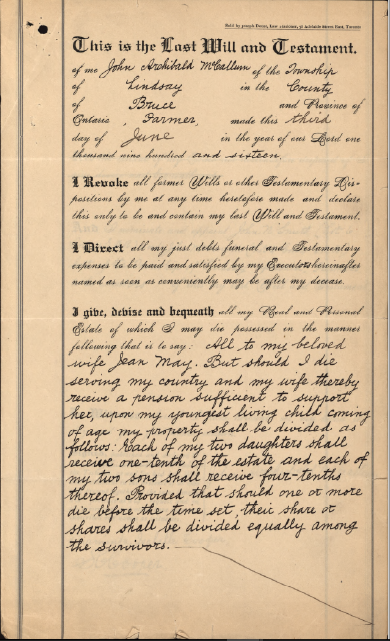 Sold by Joseph Doust, Law Stationer, 51 Adelaide Street East, Toronto
This is the Last Will and Testament.
of me John Archibald McCallum of the Township
of Lindsay in the County
of Bruce and Province of
Ontario, Farmer, made this third
day of June in the year of our Lord one
thousand nine hundred and sixteen.
I Revoke all former Wills or other Testamentary Dis-
positions by me at any time heretofore made and declare
this only to be and contain my last Will and Testament.
I Direct all my just debts funeral and Testamentary
expenses to be paid and satisfied by my Executors hereinafter
named as soon as conveniently may be after my decease.
I give, devise and bequeath all my Real and Personal
Estate of which I may die possessed in the manner
following that is to say: All to my beloved
wife Jean May. But should I die
serving my country and my wife thereby
receive a pension sufficient to support
her, upon my youngest living child coming
of age my property shall be divided as
follows: Each of my two daughters shall
receive one-tenth of the estate and each of
my two sons shall receive four-tenths
thereof. Provided that should one or more
die before the time set, their share or
shares shall be divided equally among
the survivors.